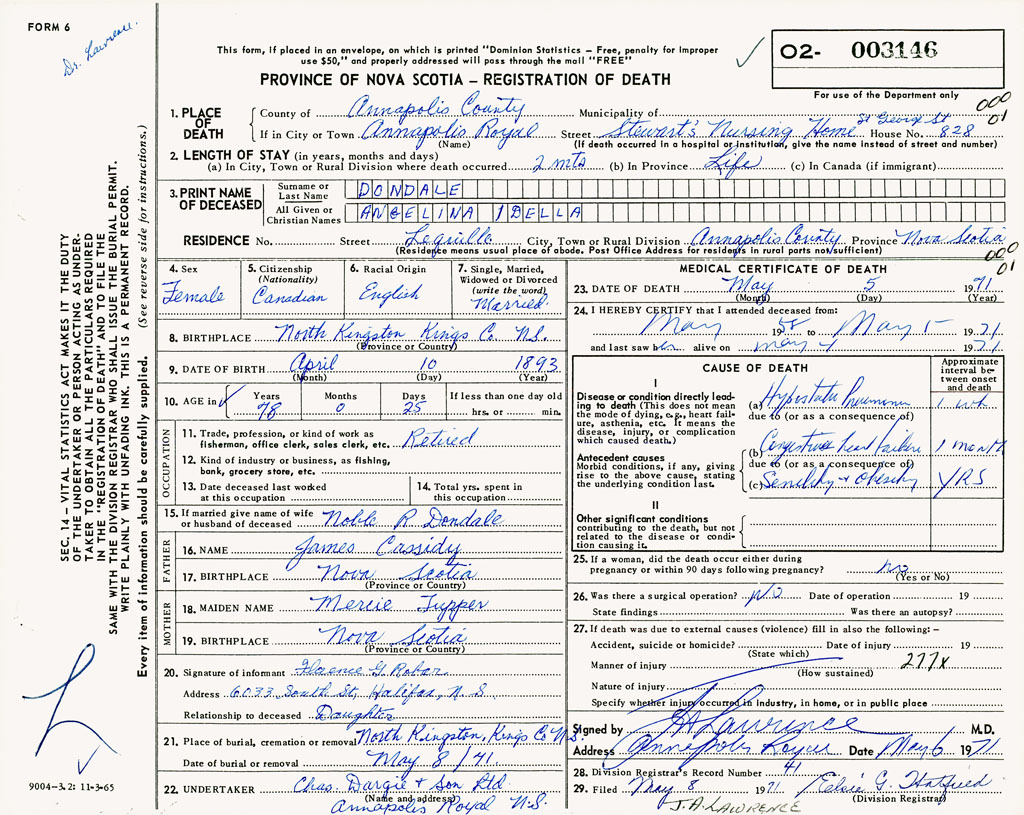 FORM 6
Dr. Lawrence.
This form, if placed in an envelope, on which is printed "Dominion Statistics — Free, penalty for improper
use $50," and properly addressed will pass through the mail "FREE"
PROVINCE OF NOVA SCOTIA – REGISTRATION OF DEATH
O2- 003146
For use of the Department only
000
01
SEC. 14 – VITAL STATISTICS ACT MAKES IT THE DUTY
OF THE UNDERTAKER OR PERSON ACTING AS UNDER-
TAKER TO OBTAIN ALL THE PARTICULARS REQUIRED
IN THE "REGISTRATION OF DEATH" AND TO FILE THE
SAME WITH THE DIVISION REGISTRAR WHO SHALL ISSUE THE BURIAL PERMIT.
WRITE PLAINLY WITH UNFADING INK. THIS IS A PERMANENT RECORD.
Every item of information should be carefully supplied. (See reverse side for instructions.)
1. PLACE OF DEATH
County of Annapolis County Municipality of
If in City or Town Annapolis Royal Street Stewart's Nursing Home St George St House No. 828
(Name) (If death occurred in a hospital or institution, give the name instead of street and number)
2. LENGTH OF STAY (in years, months and days)
(a) In City, Town or Rural Division where death occurred 2 mts (b) In Province Life (c) In Canada (if immigrant)
3. PRINT NAME OF DECEASED
Surname or Last Name DONDALE
All Given or Christian Names ANGELINA IDELLA
RESIDENCE No. Street Lequille City, Town or Rural Division Annapolis County Province Nova Scotia
(Residence means usual place of abode. Post Office Address for residents in rural parts not sufficient)
000
01
4. Sex Female
5. Citizenship (Nationality) Canadian
6. Racial Origin English
7. Single, Married, Widowed or Divorced (write the word) Married.
8. BIRTHPLACE North Kingston Kings Co. N.S.
(Province or Country)
9. DATE OF BIRTH April 10 1893
(Month) (Day) (Year)
10. AGE in ✓ Years 78 Months 0 Days 25 If less than one day old hrs. or min.
OCCUPATION
11. Trade, profession, or kind of work as
fishermen, office clerk, sales clerk, etc. Retired
12. Kind of industry or business, as fishing,
bank, grocery store, etc.
13. Date deceased last worked
at this occupation
14. Total yrs. spent in
this occupation
15. If married give name of wife
or husband of deceased Noble R Dondale
FATHER
16. NAME James Cassidy
17. BIRTHPLACE Nova Scotia
(Province or Country)
MOTHER
18. MAIDEN NAME Mercie Tupper
19. BIRTHPLACE Nova Scotia
(Province or Country)
20. Signature of informant Florence G. Robar
Address 6033 South St, Halifax, N.S.
Relationship to deceased Daughter
21. Place of burial, cremation or removal North Kingston, Kings Co N.S.
Date of burial or removal May 8/71.
22. UNDERTAKER Chas. Dargie & Son Ltd
(Name and address)
Annapolis Royal N.S.
9004-3.2: 11-3-65
MEDICAL CERTIFICATE OF DEATH
23. DATE OF DEATH May 5 1971
(Month) (Day) (Year)
24. I HEREBY CERTIFY that I attended deceased from:
May 1958 to May 5 1971
and last saw her alive on May 4 1971
CAUSE OF DEATH
Approximate interval between onset and death
I
Disease or condition directly lead-
ing to death (This does not mean
the mode of dying, e.g., heart fail-
ure, asthenia, etc. It means the
disease, injury, or complication
which caused death.)
(a) Hypostatic Pneumonia 1 wk
due to (or as a consequence of)
Antecedent causes
Morbid conditions, if any, giving
rise to the above cause, stating
the underlying condition last.
(b) Congestive heart failure 1 month
due to (or as a consequence of)
(c) Senility & Obesity YRS
II
Other significant conditions
contributing to the death, but not
related to the disease or condi-
tion causing it.
25. If a woman, did the death occur either during
pregnancy or within 90 days following pregnancy? no
(Yes or No)
26. Was there a surgical operation? NO Date of operation 19
State findings Was there an autopsy?
27. If death was due to external causes (violence) fill in also the following: –
Accident, suicide or homicide? Date of injury 19
(State which)
Manner of injury 277x
(How sustained)
Nature of injury
Specify whether injury occurred in industry, in home, or in public place
Signed by J A Lawrence M.D.
Address Annapolis Royal Date May 6 1971
28. Division Registrar's Record Number 41
29. Filed May 8 1971 Elsie G. Hatfield
(Division Registrar)
J.A. LAWRENCE